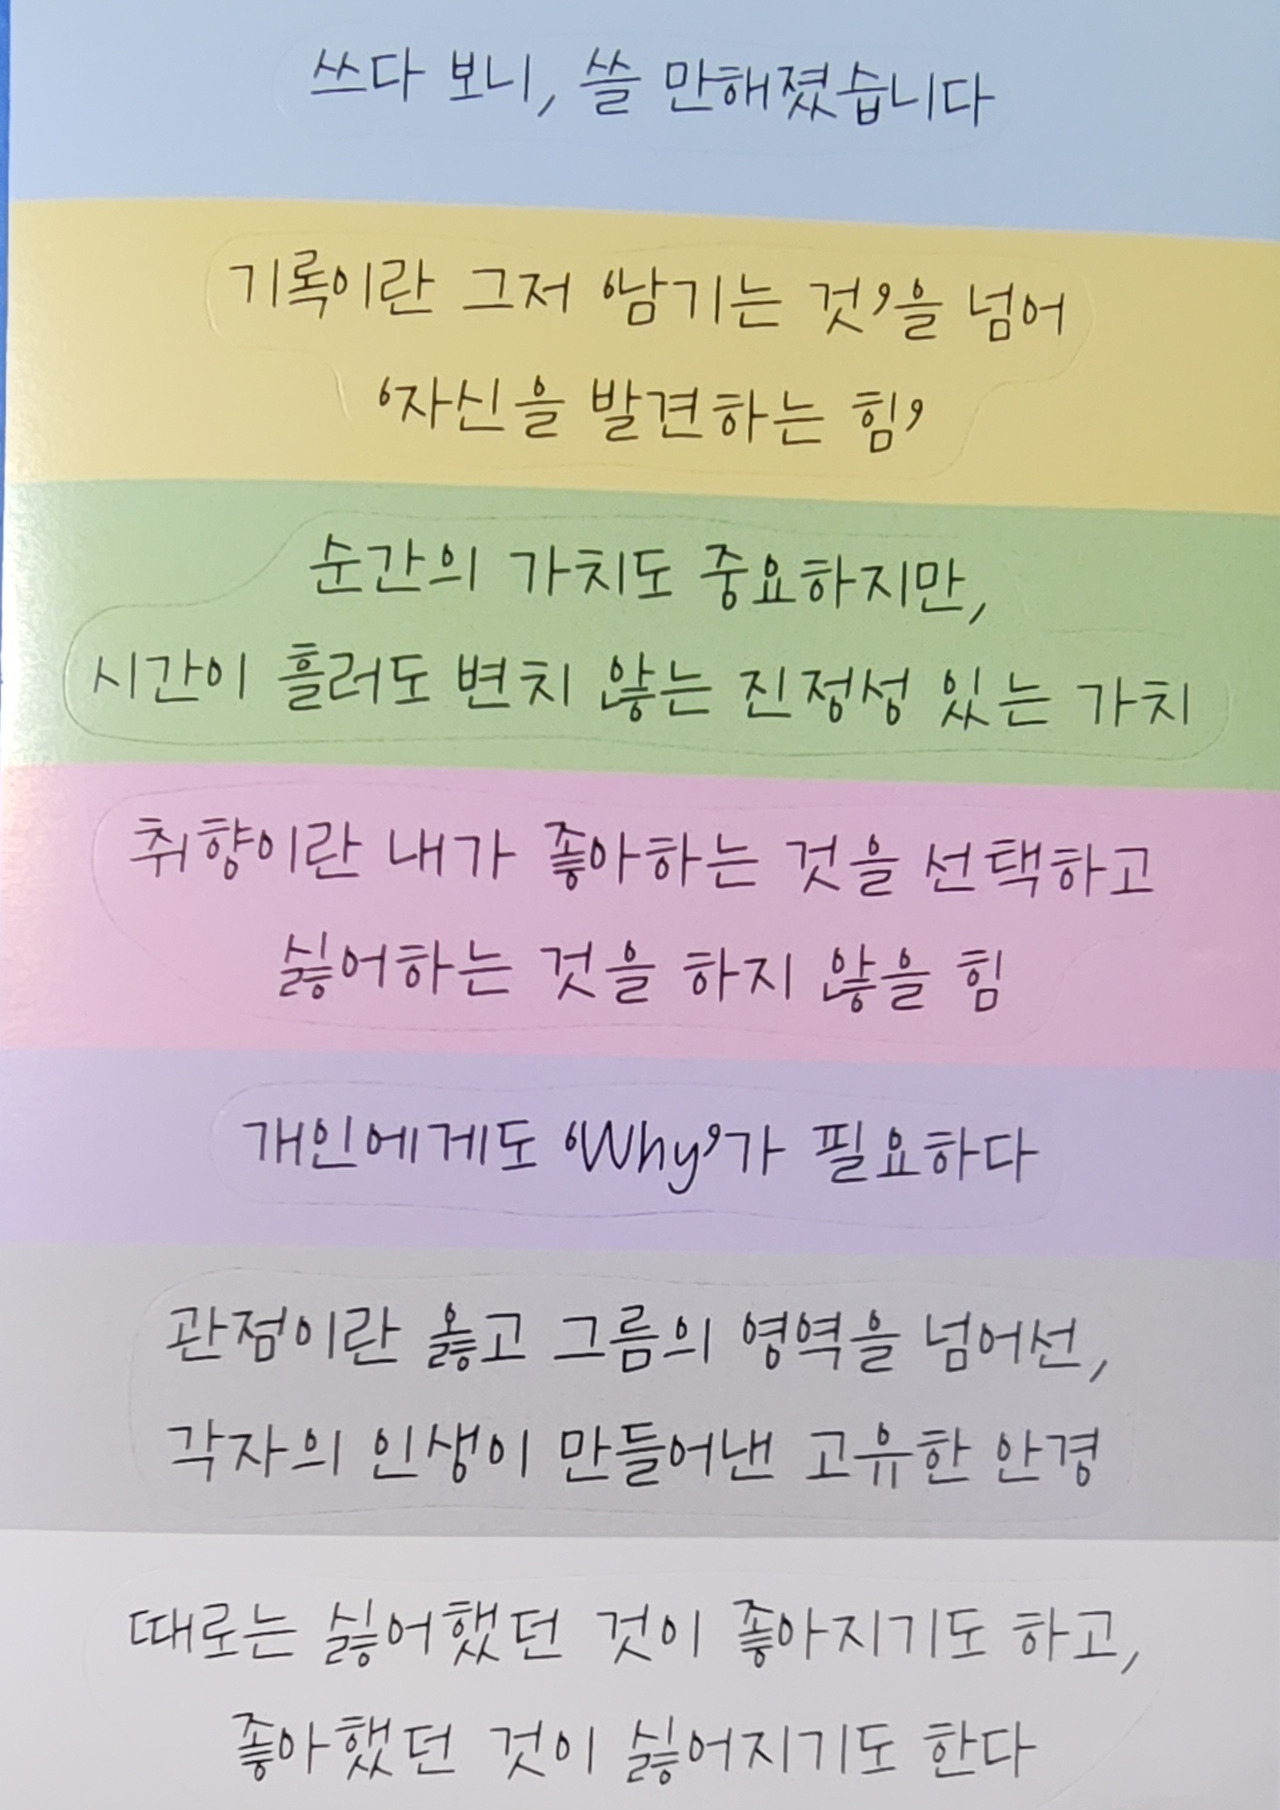 쓰다 보니, 쓸 만해졌습니다
기록이란 그저 '남기는 것'을 넘어
'자신을 발견하는 힘'
순간의 가치도 중요하지만,
시간이 흘러도 변치 않는 진정성 있는 가치
취향이란 내가 좋아하는 것을 선택하고
싫어하는 것을 하지 않을 힘
개인에게도 'Why'가 필요하다
관점이란 옳고 그름의 영역을 넘어선,
각자의 인생이 만들어낸 고유한 안경
때로는 싫어했던 것이 좋아지기도 하고,
좋아했던 것이 싫어지기도 한다